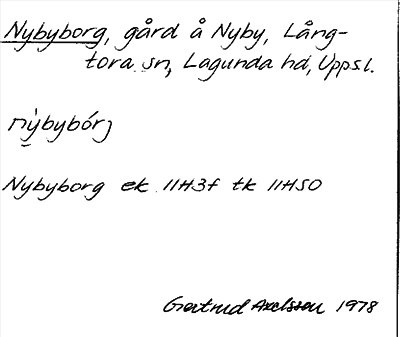 Nybyborg, gård å Nyby, Lång-
tora sn, Lagunda hd, Uppsl.
nỳbybórj
Nybyborg ek 11H3f tk 11HSO
Gertrud Axelsson 1978